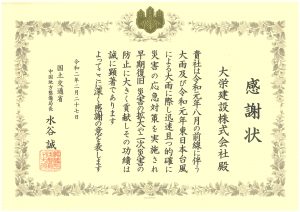 感謝状
大栄建設株式会社殿
貴社は令和元年八月の前線に伴う
大雨及び令和元年東日本台風
による大雨に際し迅速且つ的確に
災害の応急対策を実施され
早期復旧災害の拡大二次災害の
防止に大きく貢献しその功績は
誠に顕著であります
よってここに深く感謝の意を表します
令和二年二月二十七日
国土交通省
中国地方整備局長
水谷誠